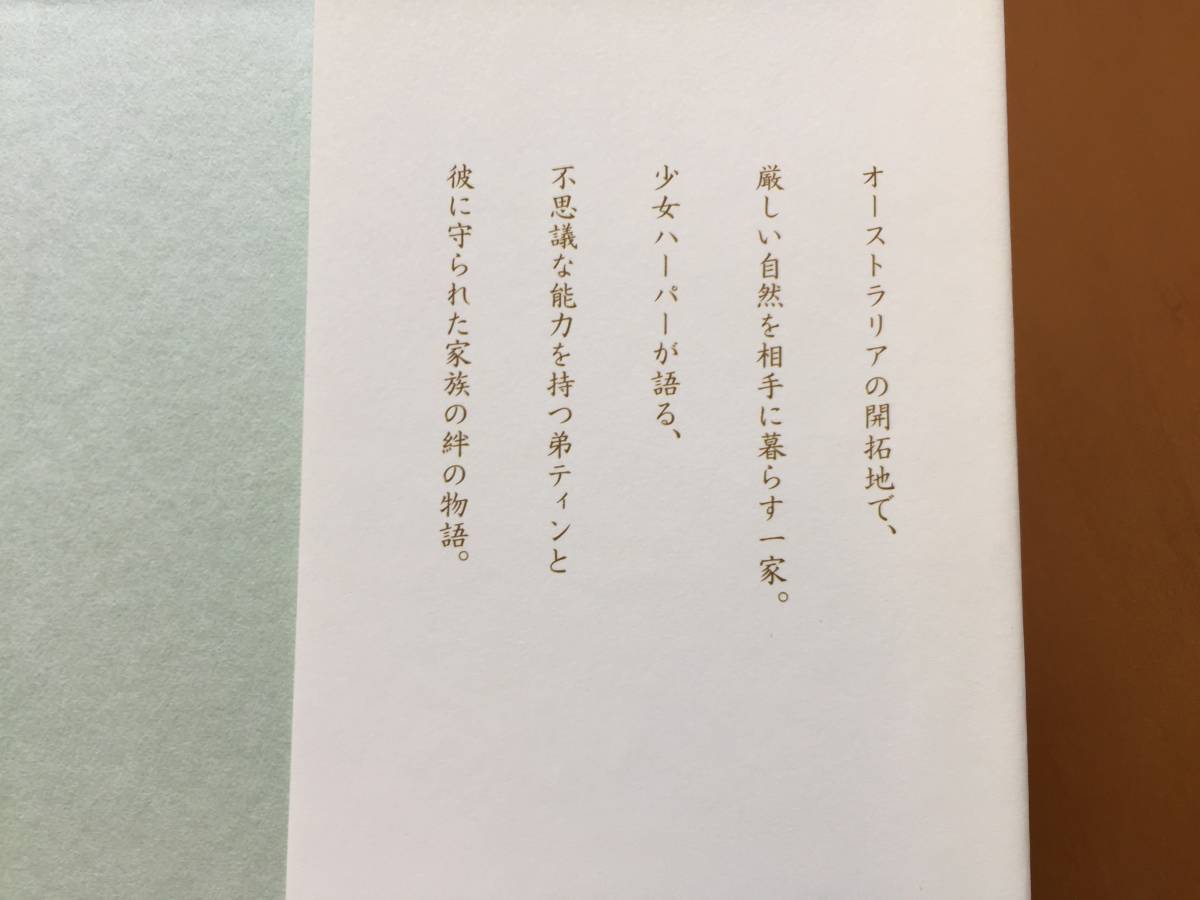 オーストラリアの開拓地で、
厳しい自然を相手に暮らす一家。
少女ハーパーが語る、
不思議な能力を持つ弟ティンと
彼に守られた家族の絆の物語。